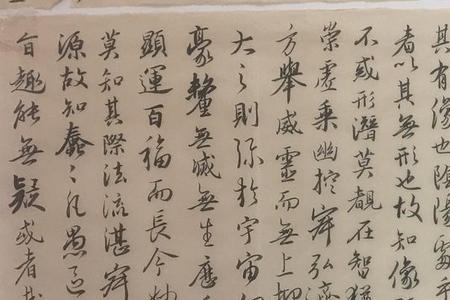 其有像也陰陽處乎
者以其無形也故知像
不或形潛莫覩在智猶
崇虛乘幽控寂弘濟
方舉威靈而無上抑
大之則弥於宇宙細
豪釐無滅無生歷
顯運百福而長今妙
莫知其際法流湛寂
源故知蠢〻凡愚區
旨趣能無疑或者哉